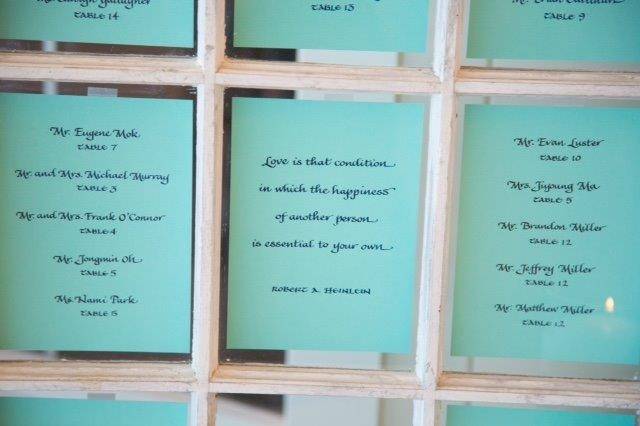 TABLE 14
TABLE 13
TABLE 9
Mr. Eugene Mok
TABLE 7
Mr. and Mrs. Michael Murray
TABLE 3
Mr. and Mrs. Frank O'Connor
TABLE 4
Mr. Jongmin Oh
TABLE 5
Ms. Nami Park
TABLE 5
Love is that condition
in which the happiness
of another person
is essential to your own
ROBERT A. HEINLEIN
Mr. Evan Luster
TABLE 10
Mrs. Jiyoung Ma
TABLE 5
Mr. Brandon Miller
TABLE 12
Mr. Jeffrey Miller
TABLE 12
Mr. Matthew Miller
TABLE 12